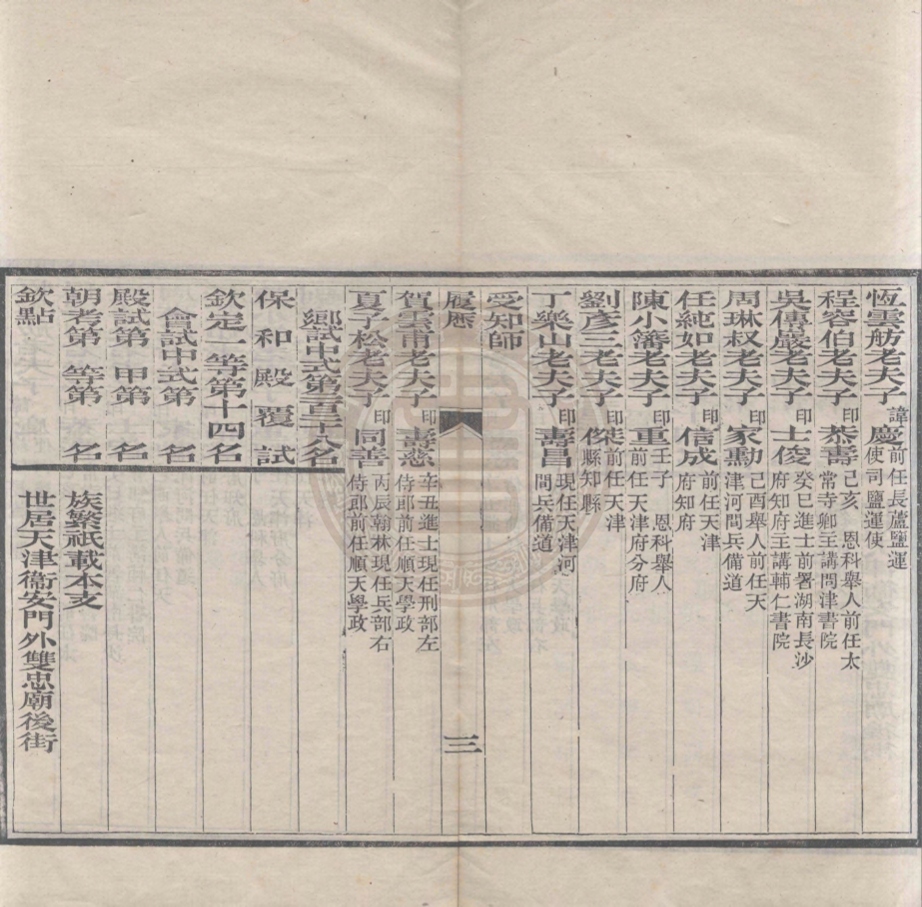 恆雲舫老夫子諱慶前任長蘆鹽運使司鹽運使
程容伯老夫子印恭壽己亥 恩科舉人前任太常寺卿主講問津書院
吳傅巖老夫子印士俊癸巳進士前署湖南長沙府知府主講輔仁書院
周琳叔老夫子印家勳己酉舉人前任天津河間兵備道
任純如老夫子印信成前任天津府知府
陳小籓老夫子印重壬子 恩科舉人前任天津府分府
劉彥三老夫子印傑前任天津縣知縣
丁樂山老夫子印壽昌現任天津河間兵備道
受知師
履歷 三
賀雲甫老夫子印壽慈辛丑進士現任刑部左侍郎前任順天學政
夏子松老夫子印同善丙辰翰林現任兵部右侍郎前任順天學政
鄉試中式第壹百三十八名
保和殿覆試
欽定一等第十四名
會試中式第 名
殿試第 甲第 名
朝考第 等第 名
欽點
族繁祇載本支
世居天津衞安門外雙忠廟後街